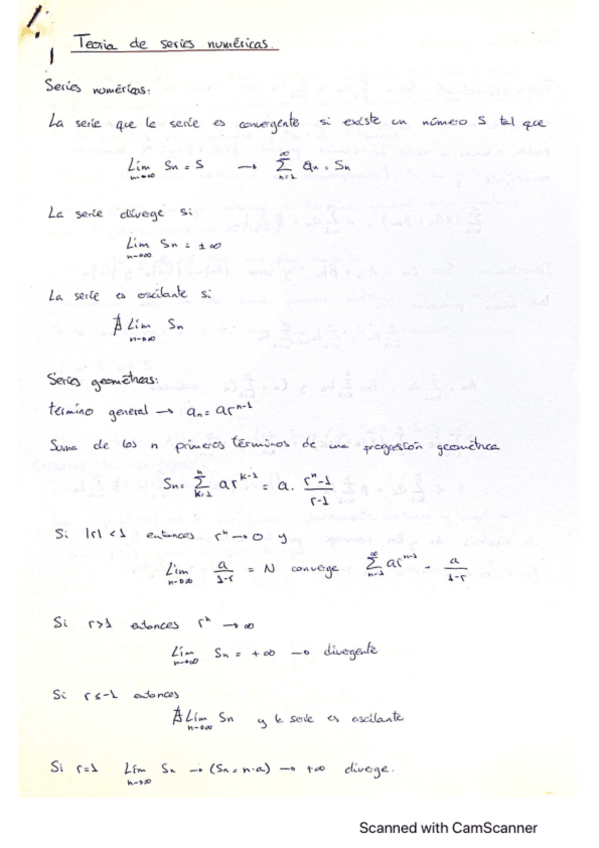 1
Teoria de series numéricas.
Series numéricas:
La serie que la serie es convergente si existe un número S tal que
Lim n→∞ Sn = S → ∞ Σ n=1 an = Sn
La serie diverge si:
Lim n→∞ Sn = ±∞
La serie es oscilante si
∄ Lim n→∞ Sn
Series geométricas:
término general → an = ar^n-1
Suma de los n primeros términos de una progresión geométrica
Sn = n Σ k=1 ar^k-1 = a · r^n-1 / r-1
Si |r| < 1 entonces r^n → 0 y
Lim n→∞ a/1-r = N converge ∞ Σ n=1 ar^n-1 = a/1-r
Si r>1 entonces r^n → ∞
Lim n→∞ Sn = +∞ → divergente
Si r≤-1 entonces
∄ Lim n→∞ Sn y la serie es oscilante
Si r=1 Lim n→∞ Sn → (Sn = n·a) → +∞ diverge.
Scanned with CamScanner